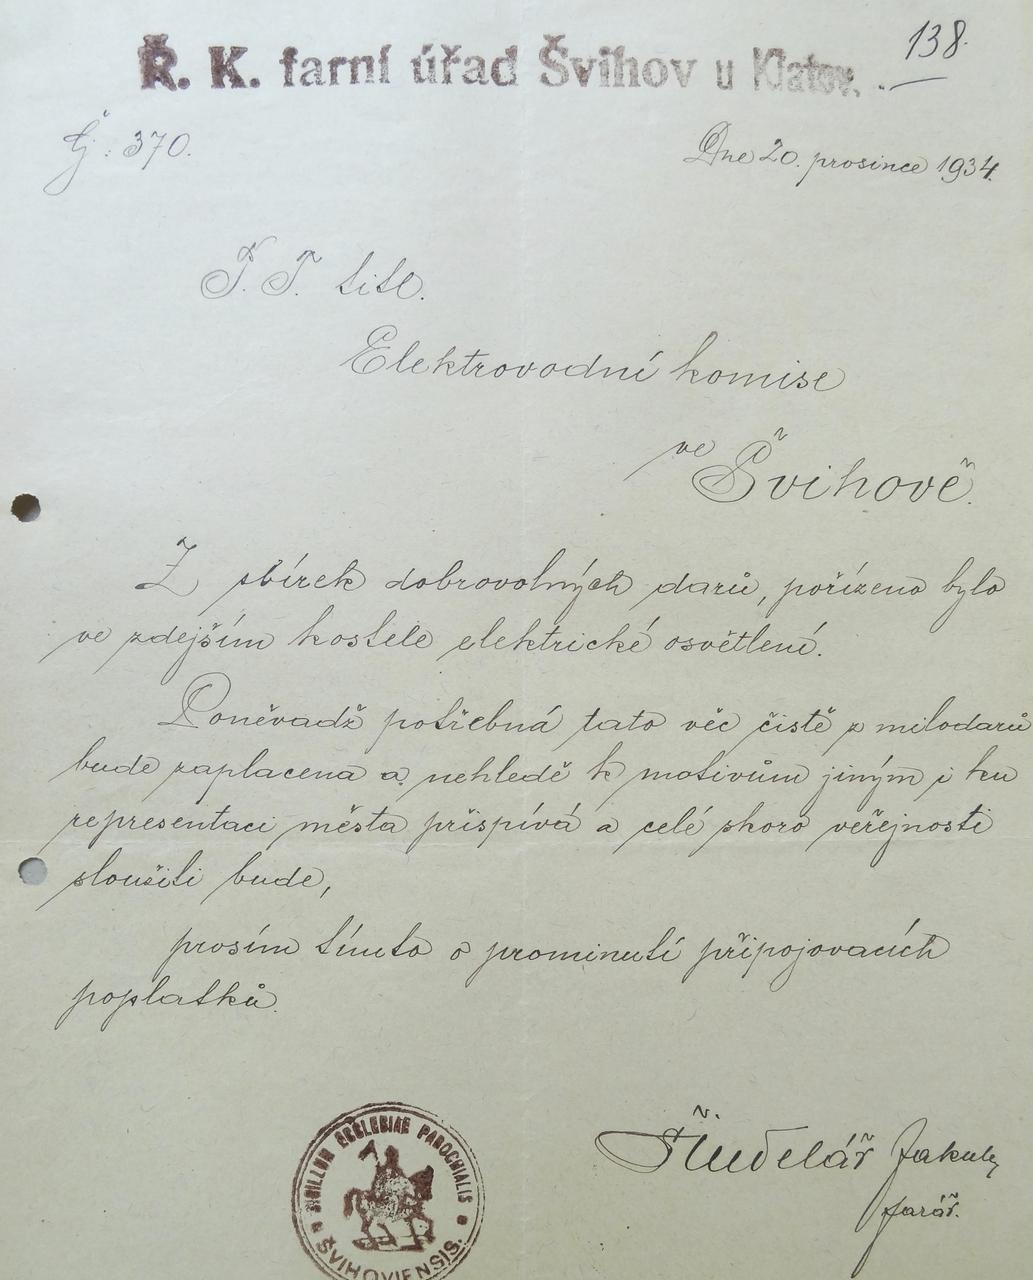 138.
Ř. K. farní úřad Švihov u Klatov.
Čj: 370.
Dne 20. prosince 1934.
P. T. titl.
Elektrovodní komise
ve Švihově.
Z sbírek dobrovolných darů, pořízeno bylo
ve zdejším kostele elektrické osvětlení.
Poněvadž potřebná tato věc čistě z milodarů
bude zaplacena a nehledě k motivům jiným i ku
representaci města přispívá a celé skoro veřejnosti
sloužiti bude,
prosím tímto o prominutí připojovacích
poplatků.
Jakub
farář.
SIGILLUM ECCLESIAE PAROCHIALIS
ŠVIHOVIENSIS.